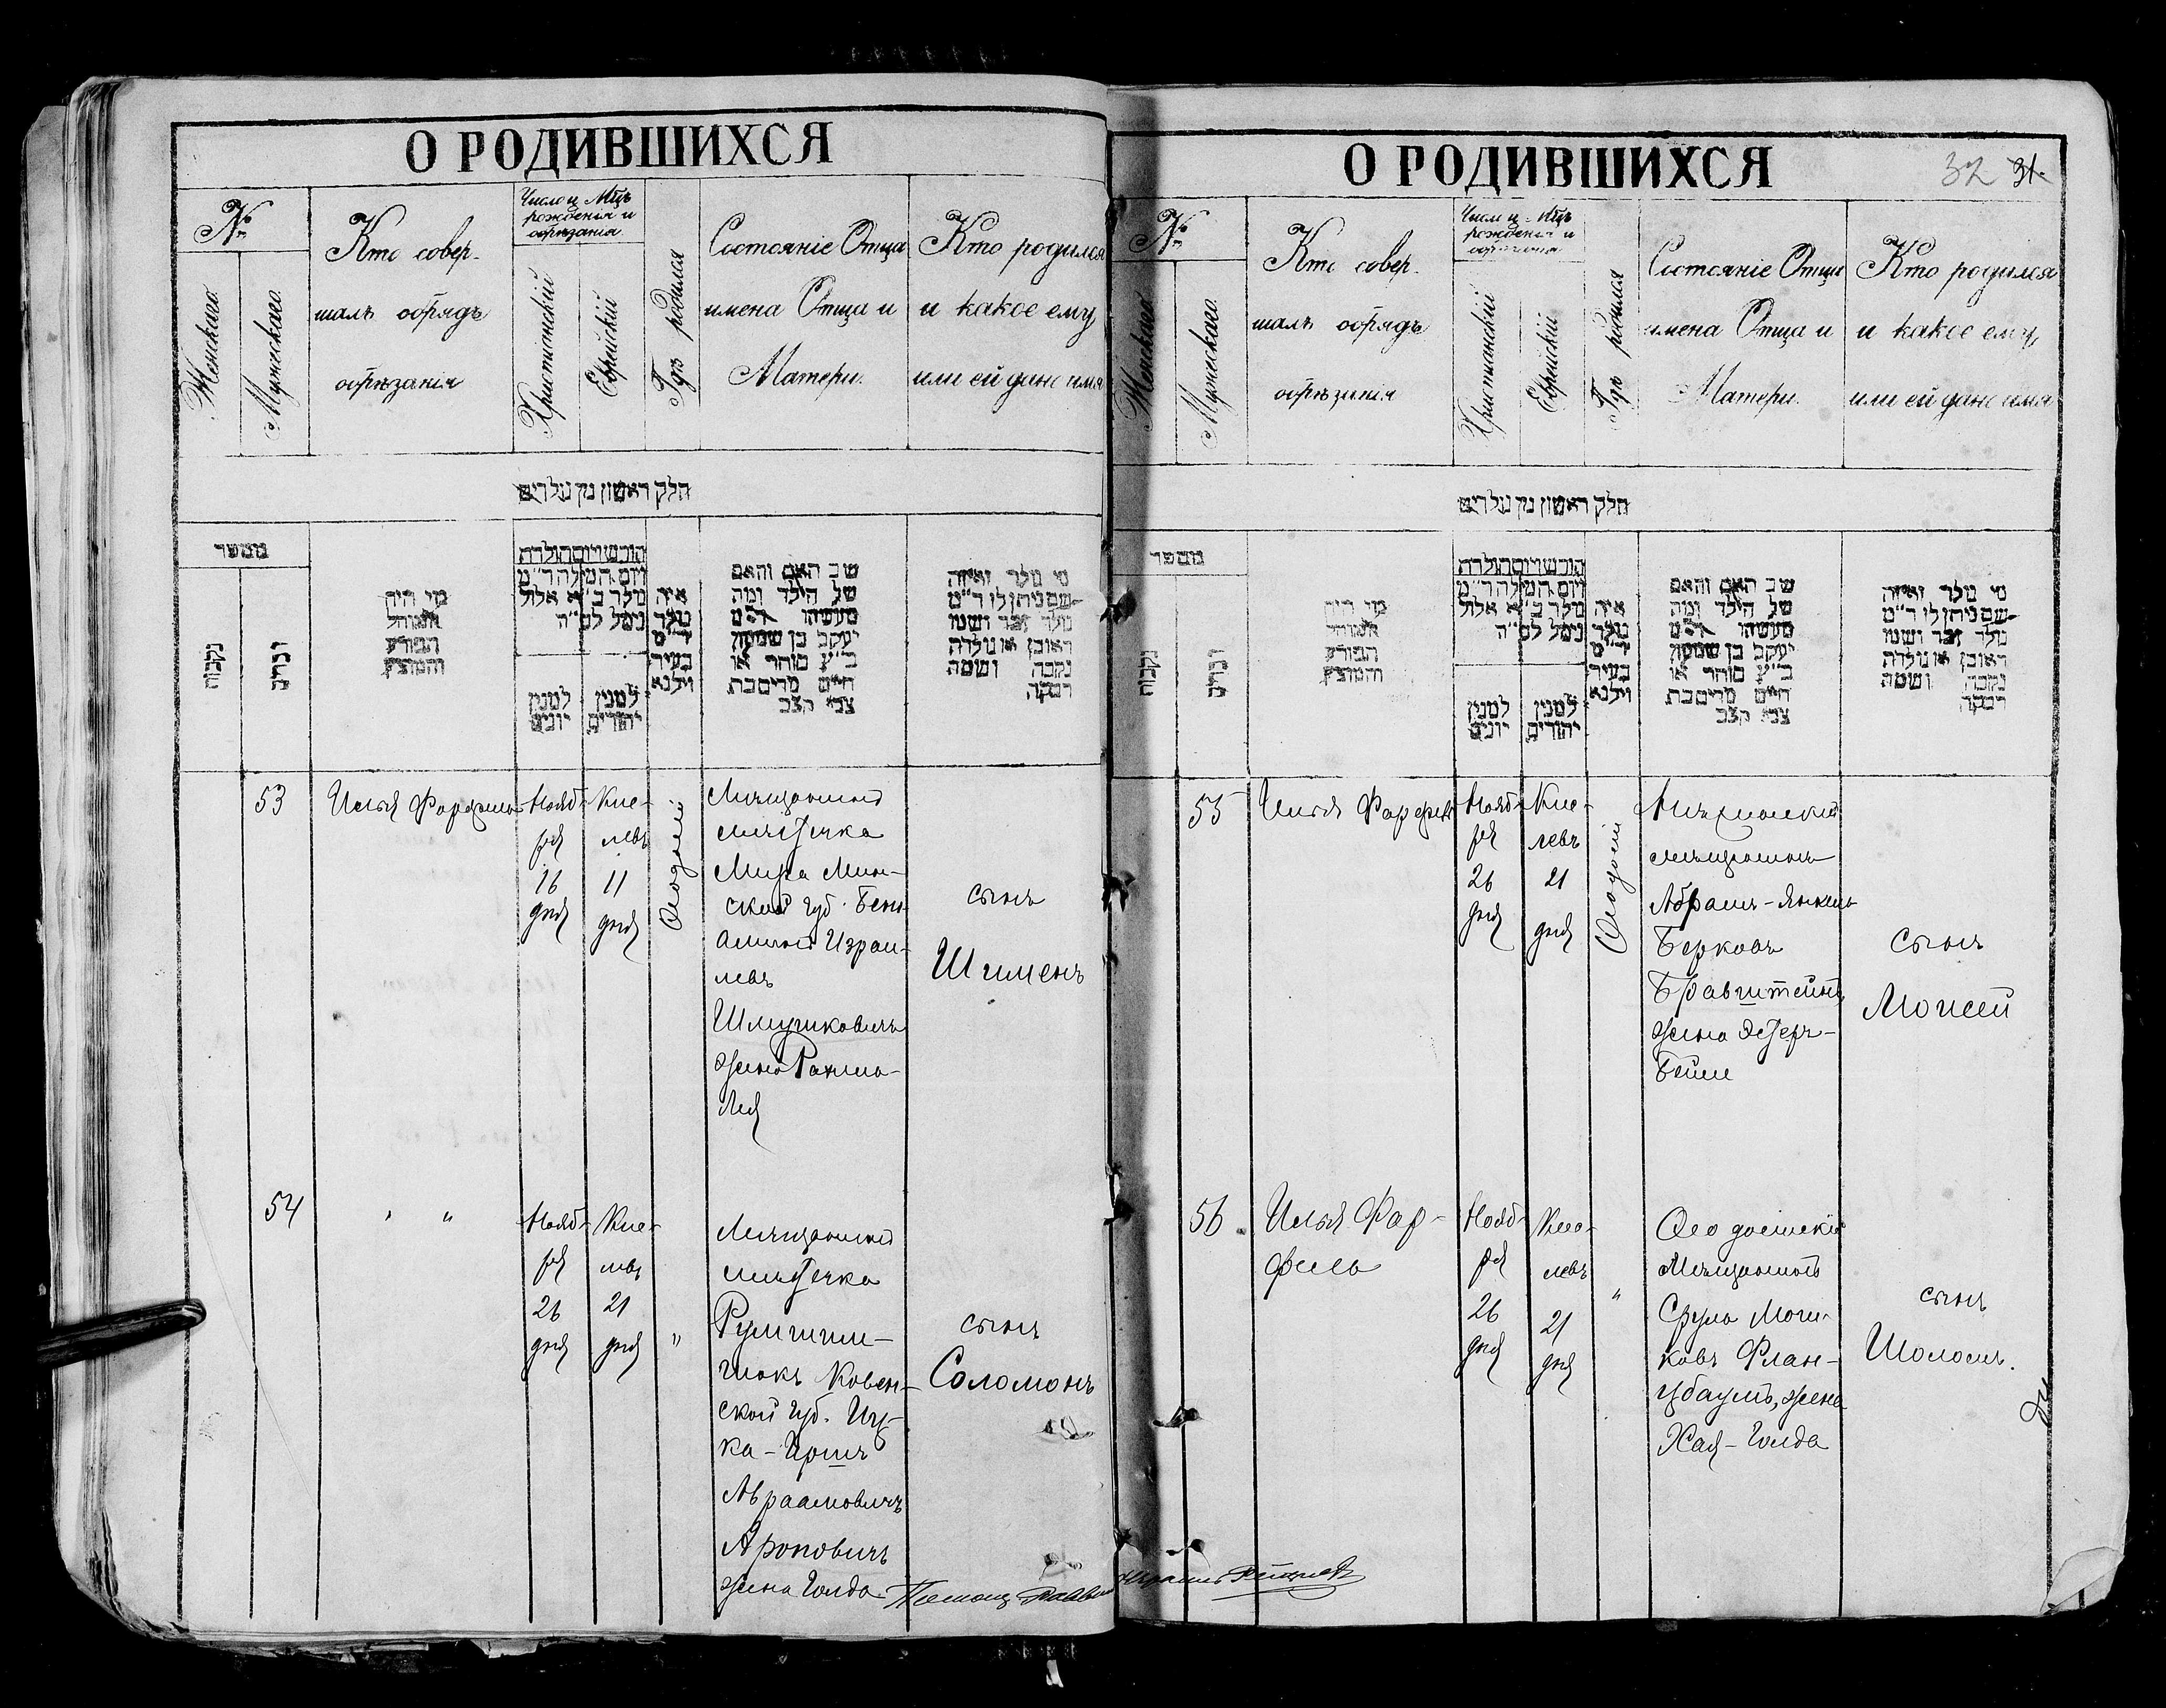 О РОДИВШИХСЯ
№
Женскаго.
Мужескаго.
Кто совер-
шалъ обрядъ
обрѣзанія
Число и Мцъ
рожденія и
обрѣзанія
Христіанскій
Еврейскій
Гдѣ родился
Состояніе Отца
имена Отца и
Матери.
Кто родился
и какое ему
или ей дано имя
חלק ראשון מן נולדים
מספר
נקבות
זכרים
מי היה
המוהל
הפורע
והמוצץ
חודש ויום הולדת
ויום המילה ד״מ
נולד ב״א אלול
נימל לס״ה
למנין
יונים
למנין
יהודים
איה
נולד
ד״מ
בעיר
ווילנא
שב האם והאם
של הילד ומה
מעשהו ד״מ
יעקב בן שמשון
כ״ץ סוחר או
חיים מרים בת
צבי קצב
מי נולד ואיזה
שם ניתן לו ד״מ
נולד זכר ושמו
ראובן או נולדה
נקבה ושמה
רבקה
53
Илья Фарфель
Нояб-
ря
16
дня
Кис-
левъ
11
дня
Ѳеодосій
Мѣщанинъ
мѣстечка
Мира Мин-
ской губ. Бень-
аминъ Израи-
левъ
Шмушковичъ
жена Рахиль-
Лея
сынъ
Шименъ
54
" "
Нояб-
ря
26
дня
Кис-
левъ
21
дня
"
Мѣщанинъ
мѣстечка
Румшиш-
шокъ Ковен-
ской губ. Иц-
ка-Иршъ
Авраамовичъ
Ароновичъ
жена Голда
сынъ
Соломонъ
О РОДИВШИХСЯ
32 31.
№
Женскаго
Мужескаго.
Кто совер-
шалъ обрядъ
обрѣзанія
Число и Мцъ
рожденія и
обрѣзанія
Христіанскій
Еврейскій
Гдѣ родился
Состояніе Отца
имена Отца и
Матери.
Кто родился
и какое ему,
или ей дано имя
חלק ראשון מן נולדים
מספר
נקבות
זכרים
מי היה
המוהל
הפורע
והמוצץ
חודש ויום הולדת
ויום המילה ד״מ
נולד ב״א אלול
נימל לס״ה
למנין
יונים
למנין
יהודים
איה
נולד
ד״מ
בעיר
ווילנא
שב האם והאם
של הילד ומה
מעשהו ד״מ
יעקב בן שמשון
כ״ץ סוחר או
חיים מרים בת
צבי קצב
מי נולד ואיזה
שם ניתן לו ד״מ
נולד זכר ושמו
ראובן או נולדה
נקבה ושמה
רבקה
55
Илья Фарфель
Нояб-
ря
26
дня
Кис-
левъ
21
дня
Ѳеодосій
мѣщанинъ
Абрамъ-Янкель
Берковъ
Бравштейнъ,
жена Эстеръ-
Бейле
сынъ
Моисей
56.
Илья Фар-
фель
Нояб-
ря
26
дня
Кис-
левъ
21
дня
"
Ѳеодосійскій
Мѣщанинъ
Сруль Мош-
ковъ Флан-
цбаумъ, жена
Хая-Голда
сынъ
Шоломъ.
Помощ. Раввина